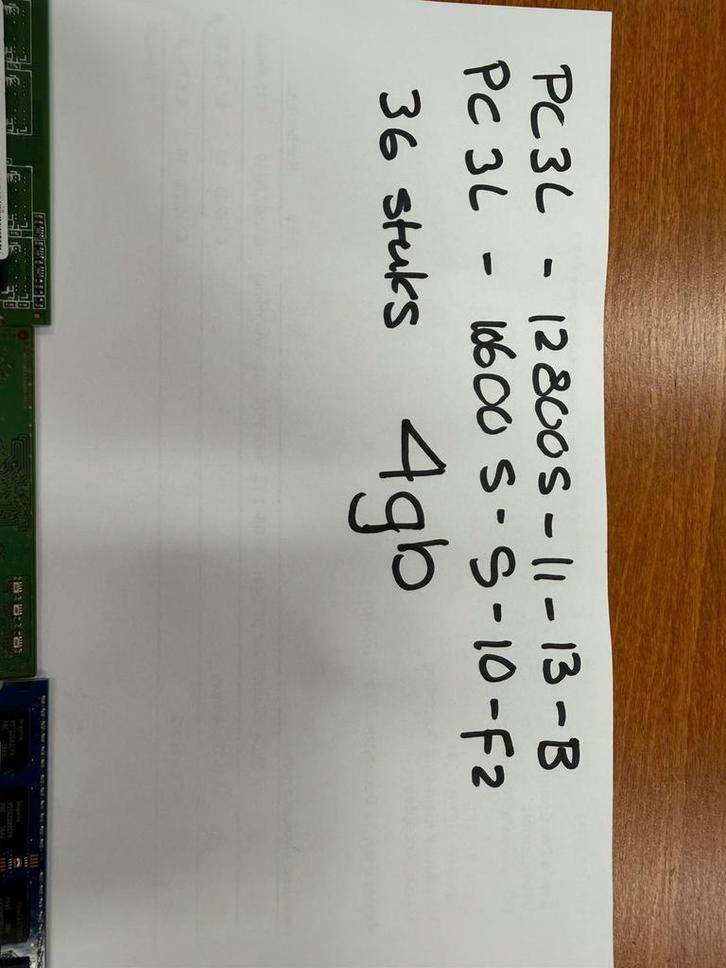 PC3L - 12800S-11-13-B
PC3L - 10600S-S-10-F2
36 stuks 4gb